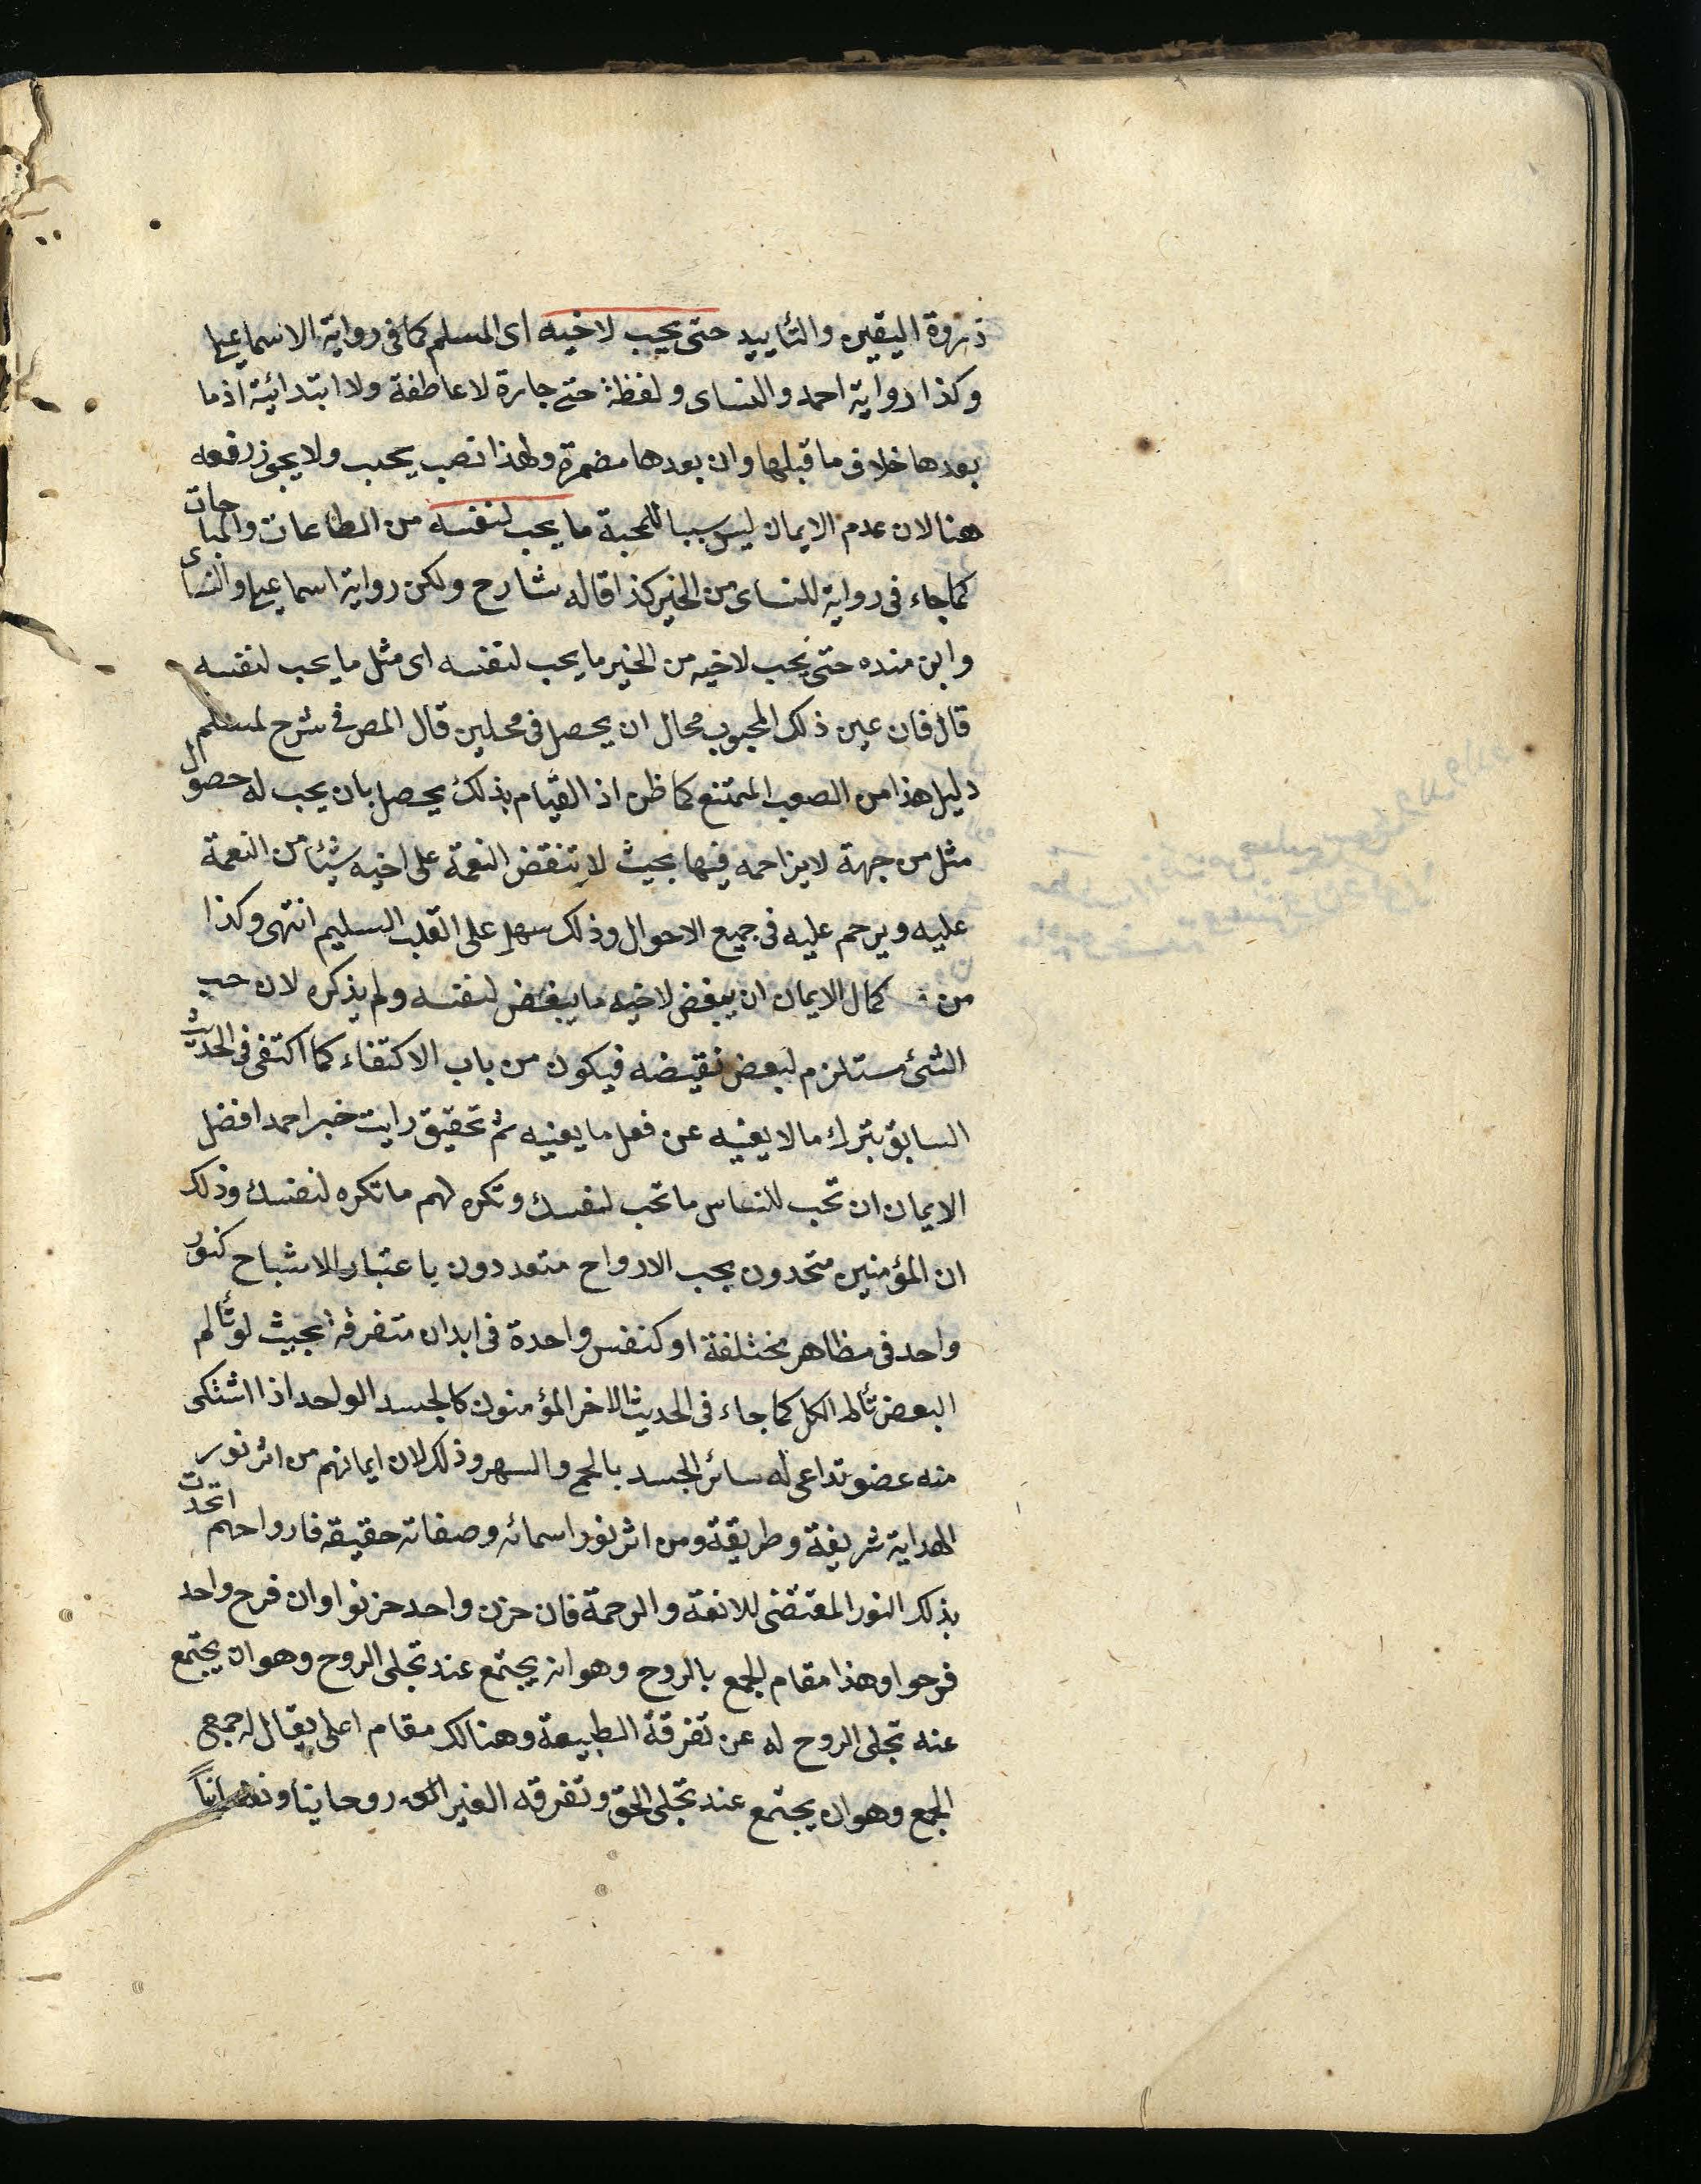 ذروة اليقين والتأييد حتى يحب لاخيه اى المسلم كما فى رواية الاسماعيلى
وكذا رواية احمد والنساى ولفظة حتى جارة لا عاطفة ولا ابتدائية اذ ما
بعدها خلاف ما قبلها وان بعدها مضمرة ولهذا نصب يحب ولا يجوز رفعه
هنا لان عدم الايمان ليس سببا للمحبة ما يحب لنفسه من الطاعات والمباحات
كما جاء فى رواية للنساى من الخير كذا قاله شارح ولكن رواية اسماعيلى والنساى
وابن منده حتى يحب لاخيه من الخير ما يحب لنفسه اى مثل ما يحب لنفسه
قال فان عين ذلك المحبوب محال ان يحصل فى محلين قال المص فى شرح لمسلم
دليل هذا من الصعب الممتنع كما ظن اذ القيام بذلك يحصل بان يحب له حصول
مثل من جهة لا يزاحمه فيها بحيث لا تنقض النعمة على اخيه شيئا من النعمة
عليه ويرحم عليه فى جميع الاحوال وذلك سهل على القلب السليم انتهى وكذا
من كمال الايمان ان يبغض لاخيه ما يبغض لنفسه ولم يذكره لان حب
الشئ مستلزم لبعض نقيضه فيكون من باب الاكتفاء كما اكتفى فى الحديث
السابق بترك ما لا يعنيه عن فعل ما يعنيه ثم تحقيق رايت خبر احمد افضل
الايمان ان تحب للناس ما تحب لنفسك وتكره لهم ما تكره لنفسك وذلك
ان المؤمنين متحدون بحب الارواح متعددون باعتبار الاشباح كنور
واحد فى مظاهر مختلفة او كنفس واحدة فى ابدان متفرقة بحيث لو تألم
البعض تألم الكل كما جاء فى الحديث الاخر المؤمنون كالجسد الواحد اذا اشتكى
منه عضو تداعى له سائر الجسد بالحمى والسهر وذلك لان ايمانهم من اثر نور
الهداية شريفة وطريقة ومن اثر نور اسمائه وصفاته حقيقه فارواحهم اتحدت
بذلك النور المقتضى للانفة والرحمة فان حزن واحد حزنوا وان فرح واحد
فرحوا وهذا مقام الجمع بالروح وهو انه يجتمع عند تجلى الروح وهو ان يجتمع
عنه تجلى الروح له عن تفرقة الطبيعة وهنالك مقام اعلى يقال له جمع
الجمع وهو ان يجتمع عند تجلى الحق وتفرقه الغير روحانيا ونفسانيا